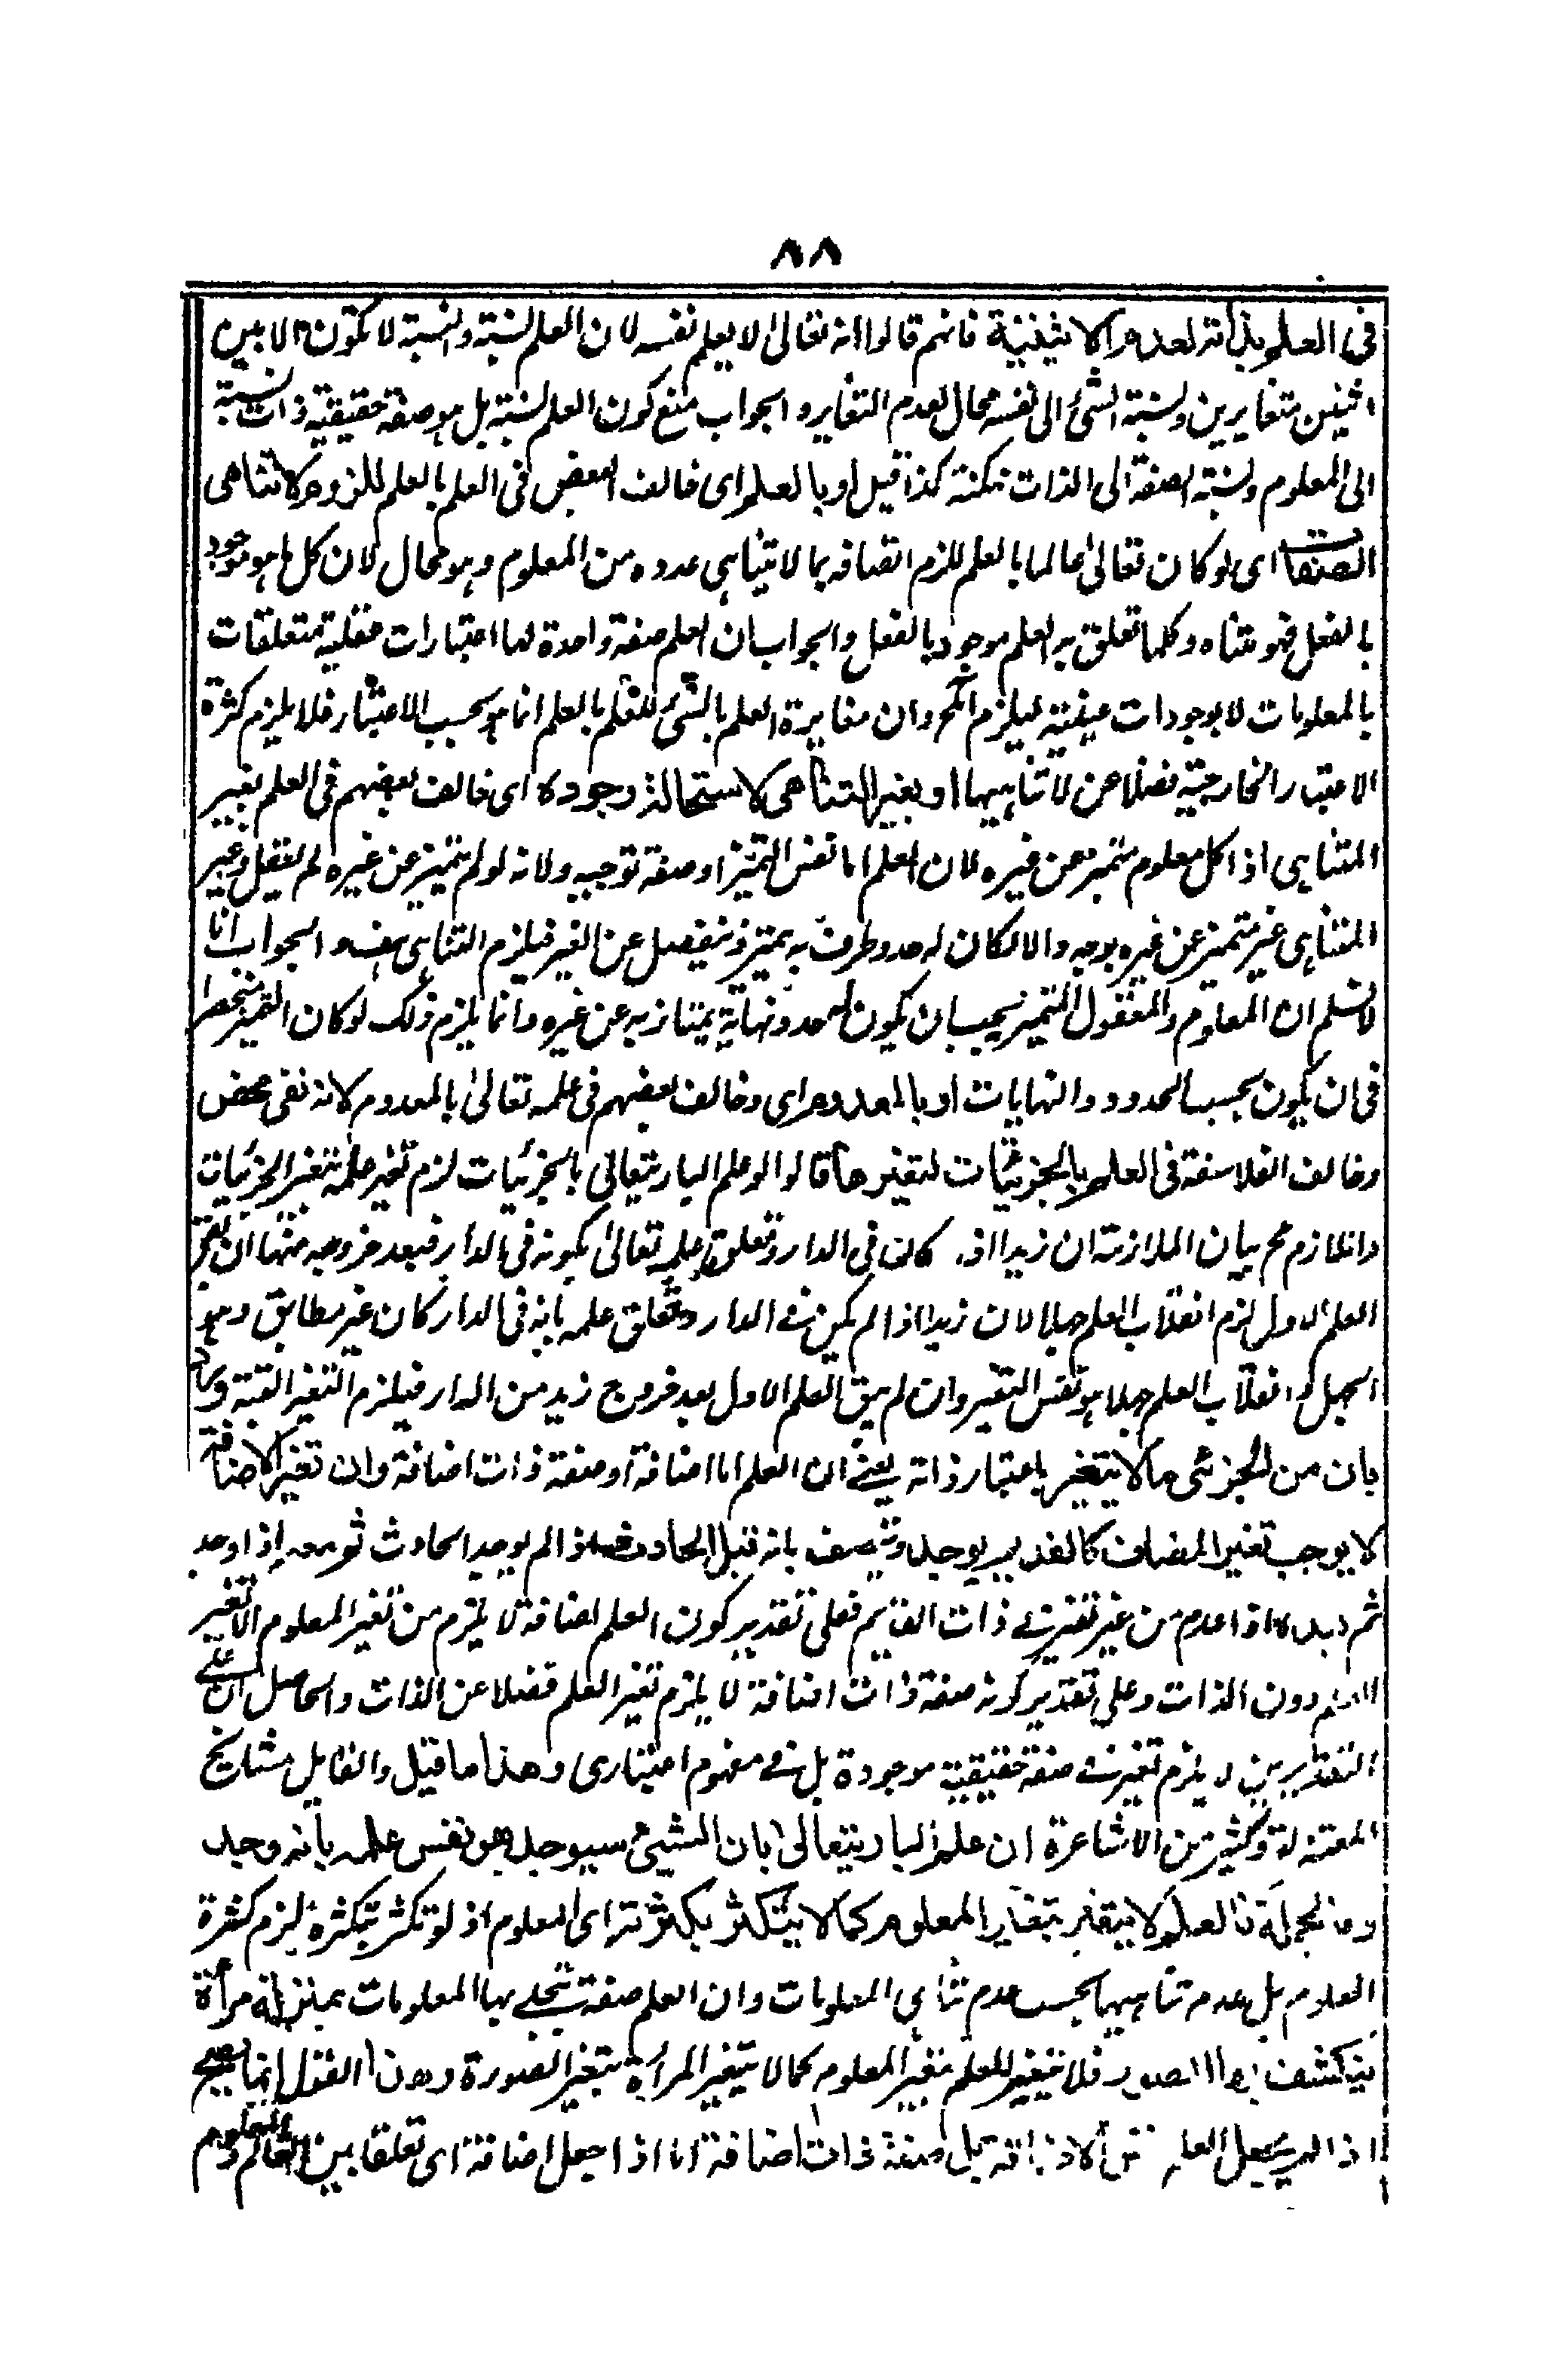 ٨٨
في العلم بذاته لعدم الاثنينية فانهم قالوا انه تعالى لا يعلم نفسه لان العلم نسبة والنسبة لا تكون الا بين
اثنين متغايرين ونسبة الشئ الى نفسه محال لعدم التغاير والجواب منع كون العلم نسبة بل هو صفة حقيقية ذات نسبة
الى المعلوم ونسبة الصفة الى الذات ممكنة كذا قيل او بالعلم اى خالف البعض فى العلم بالعلم للزوم لاتناهى
الصفات اى لو كان تعالى عالما بالعلم للزم اتصافه بما لا يتناهى عدده من المعلوم وهو محال لان كل ما هو موجود
بالفعل فهو متناه وكلما تعلق به العلم موجود بالفعل والجواب ان العلم صفة واحدة لها اعتبارات عقلية متعلقات
بالمعلومات لا بوجودات عينية ليلزم المح وان مغايرة العلم بالشئ للعلم بالعلم انما هو بحسب الاعتبار فلا يلزم كثرة
الاعتبار الخارجية فضلا عن لا تناهيها او بغير المتناهى لاستحالة وجوده اى خالف بعضهم فى العلم بغير
المتناهى اذ كل معلوم متميز عن غيره لان العلم اما نفس التميز او صفة توجبه ولانه لو لم يتميز عن غيره لم يعقل وغير
المتناهى غير متميز عن غيره بوجه والا لكان له حد وطرف به يتميز وينفصل عن الغير فيلزم التناهى هف والجواب انا
لا نسلم ان المعلوم والمعقول المتميز يجب ان يكون له حد ونهاية يمتاز به عن غيره وانما يلزم ذلك لو كان التميز منحصرا
فى ان يكون بحسب الحدود والنهايات او بالمعدوم اى وخالف بعضهم فى علمه تعالى بالمعدوم لانه نفى محض
وخالف الفلاسفة فى العلم بالجزئيات لتغيرها قالوا لو علم البارى تعالى بالجزئيات لزم تغير علمه بتغير الجزئيات
واللازم مح بيان الملازمة ان زيدا اذا كان فى الدار وتعلق علمه تعالى بكونه فى الدار فبعد خروجه منها ان بقى
العلم الاول لزم انقلاب العلم جهلا لان زيدا اذا لم يكن فى الدار وتعلق علمه بانه فى الدار كان غير مطابق وهو
الجهل وانقلاب العلم جهلا هو نفس التغير وان لم يبق العلم الاول بعد خروج زيد من الدار فيلزم التغير البتة ورد
بان من الجزئى ما لا يتغير باعتبار ذاته يعنى ان العلم اما اضافة او صفة ذات اضافة وان تغير الاضافة
لا يوجب تغير المضاف كالقديم يوجد ويتصف بانه قبل الحادث اذا لم يوجد الحادث ثم معه اذا وجد
ثم بعده اذا عدم من غير تغير فى ذات القديم فعلى تقدير كون العلم اضافة لا يلزم من تغير المعلوم الا تغير
العلم دون الذات وعلى تقدير كونه صفة ذات اضافة لا يلزم تغير العلم فضلا عن الذات والحاصل ان على
التقديرين لا يلزم تغير فى صفة حقيقية موجودة بل فى مفهوم اعتبارى وهذا ما قيل والقايل مشايخ
المعتزلة وكثير من الاشاعرة ان علم البارى تعالى بان الشيئ سيوجد هو نفس علمه بأنه وجد
وبالجملة فالعلم لا يتغير بتغير المعلوم كما لا يتكثر بكثرته اى المعلوم اذ لو تكثر بتكثره لزم كثرة
العلوم بل عدم تناهيها بحسب عدم تناهى المعلومات وان العلم صفة تتجلى بها المعلومات بمنزلة مرآة
ينكشف بها الصور فلا يتغير العلم بتغير المعلوم كما لا يتغير المرآة بتغير الصورة وهذا القول انما يصح
اذا لم يجعل العلم نفس الاضافة بل صفة ذات اضافة اما اذا جعل اضافة اى تعلقا بين العالم والمعلوم